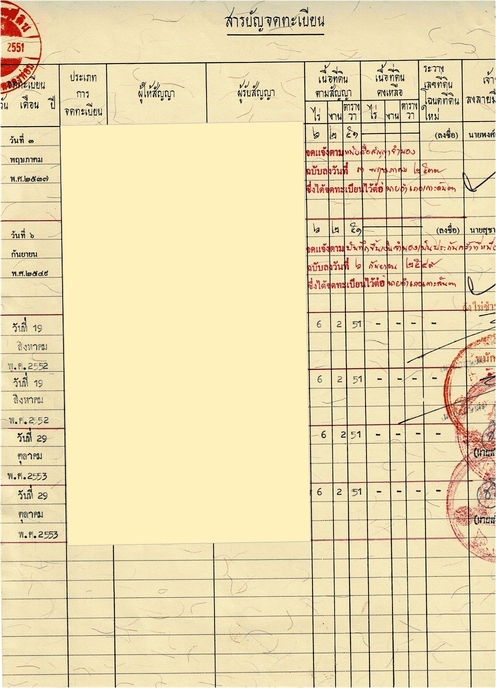 สารบัญจดทะเบียน
2551
จดทะเบียน
วัน เดือน ปี
ประเภท
การ
จดทะเบียน
ผู้ให้สัญญา
ผู้รับสัญญา
เนื้อที่ดิน
ตามสัญญา
ไร่ งาน ตาราง
วา
เนื้อที่ดิน
คงเหลือ
ไร่ งาน ตาราง
วา
ระวาง
เลขที่ดิน
โฉนดที่ดิน
ใหม่
เจ้า
ลงลายมื
วันที่ ๓
พฤษภาคม
พ.ศ.๒๕๓๗
๖ ๒ ๕๑
(ลงชื่อ) นายพงศ์
จดแจ้งตามหนังสือสัญญาจำนอง
ฉบับลงวันที่ ๓ พฤษภาคม ๒๕๓๗
ซึ่งได้จดทะเบียนไว้ต่อ
วันที่ ๖
กันยายน
พ.ศ.๒๕๔๙
๖ ๒ ๕๑
(ลงชื่อ) นายสุชา
จดแจ้งตามบันทึกขึ้นเงินจำนองเป็นประกัน
ฉบับลงวันที่ ๖ กันยายน ๒๕๔๙
ซึ่งได้จดทะเบียนไว้ต่อ
วันที่ 19
สิงหาคม
พ.ศ.2552
6 2 51 - - - -
วันที่ 19
สิงหาคม
พ.ศ.2552
6 2 51 - - - -
วันที่ 29
ตุลาคม
พ.ศ.2553
6 2 51 - - - -
วันที่ 29
ตุลาคม
พ.ศ.2553
6 2 51 - - - -